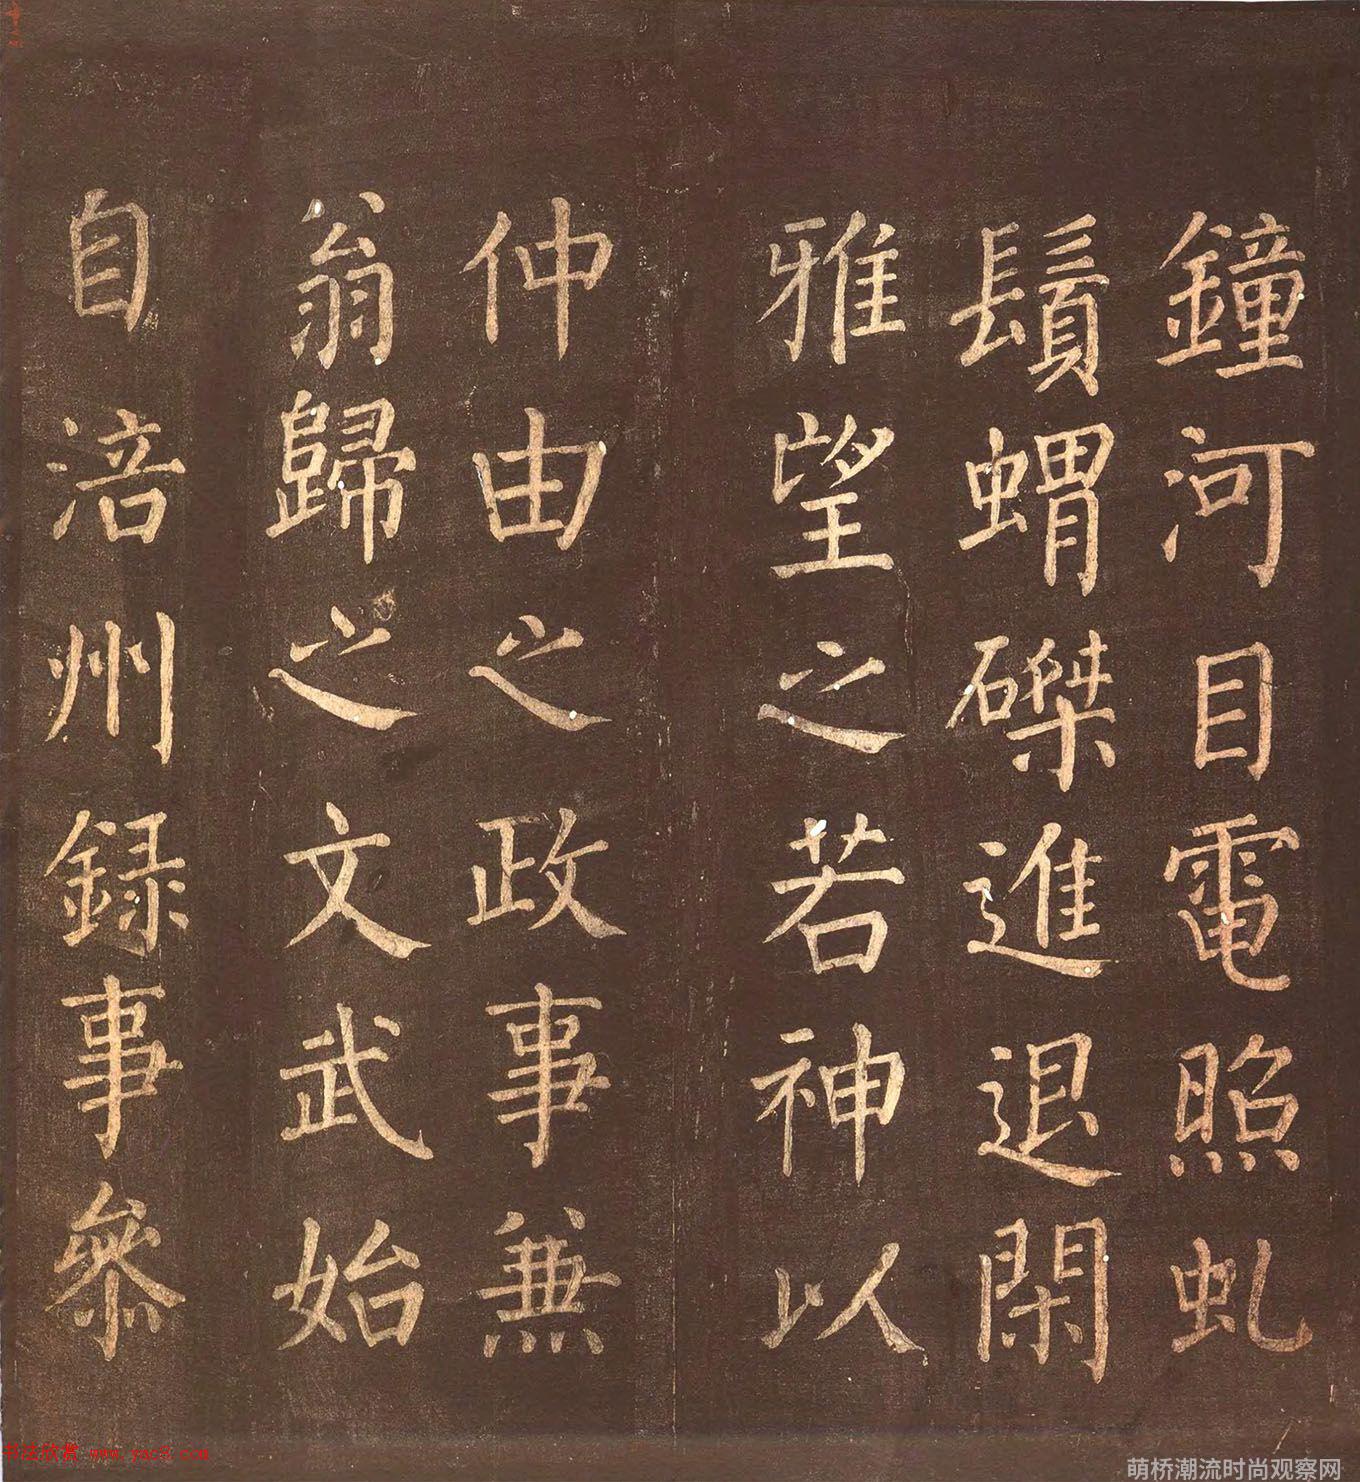 鐘河目電照虬
鬚蝟磔進退閑
雅望之若神以
仲由之政事兼
翁歸之文武始
自涪州録事參
书法欣赏 www.yac8.com
萌桥潮流时尚观察网